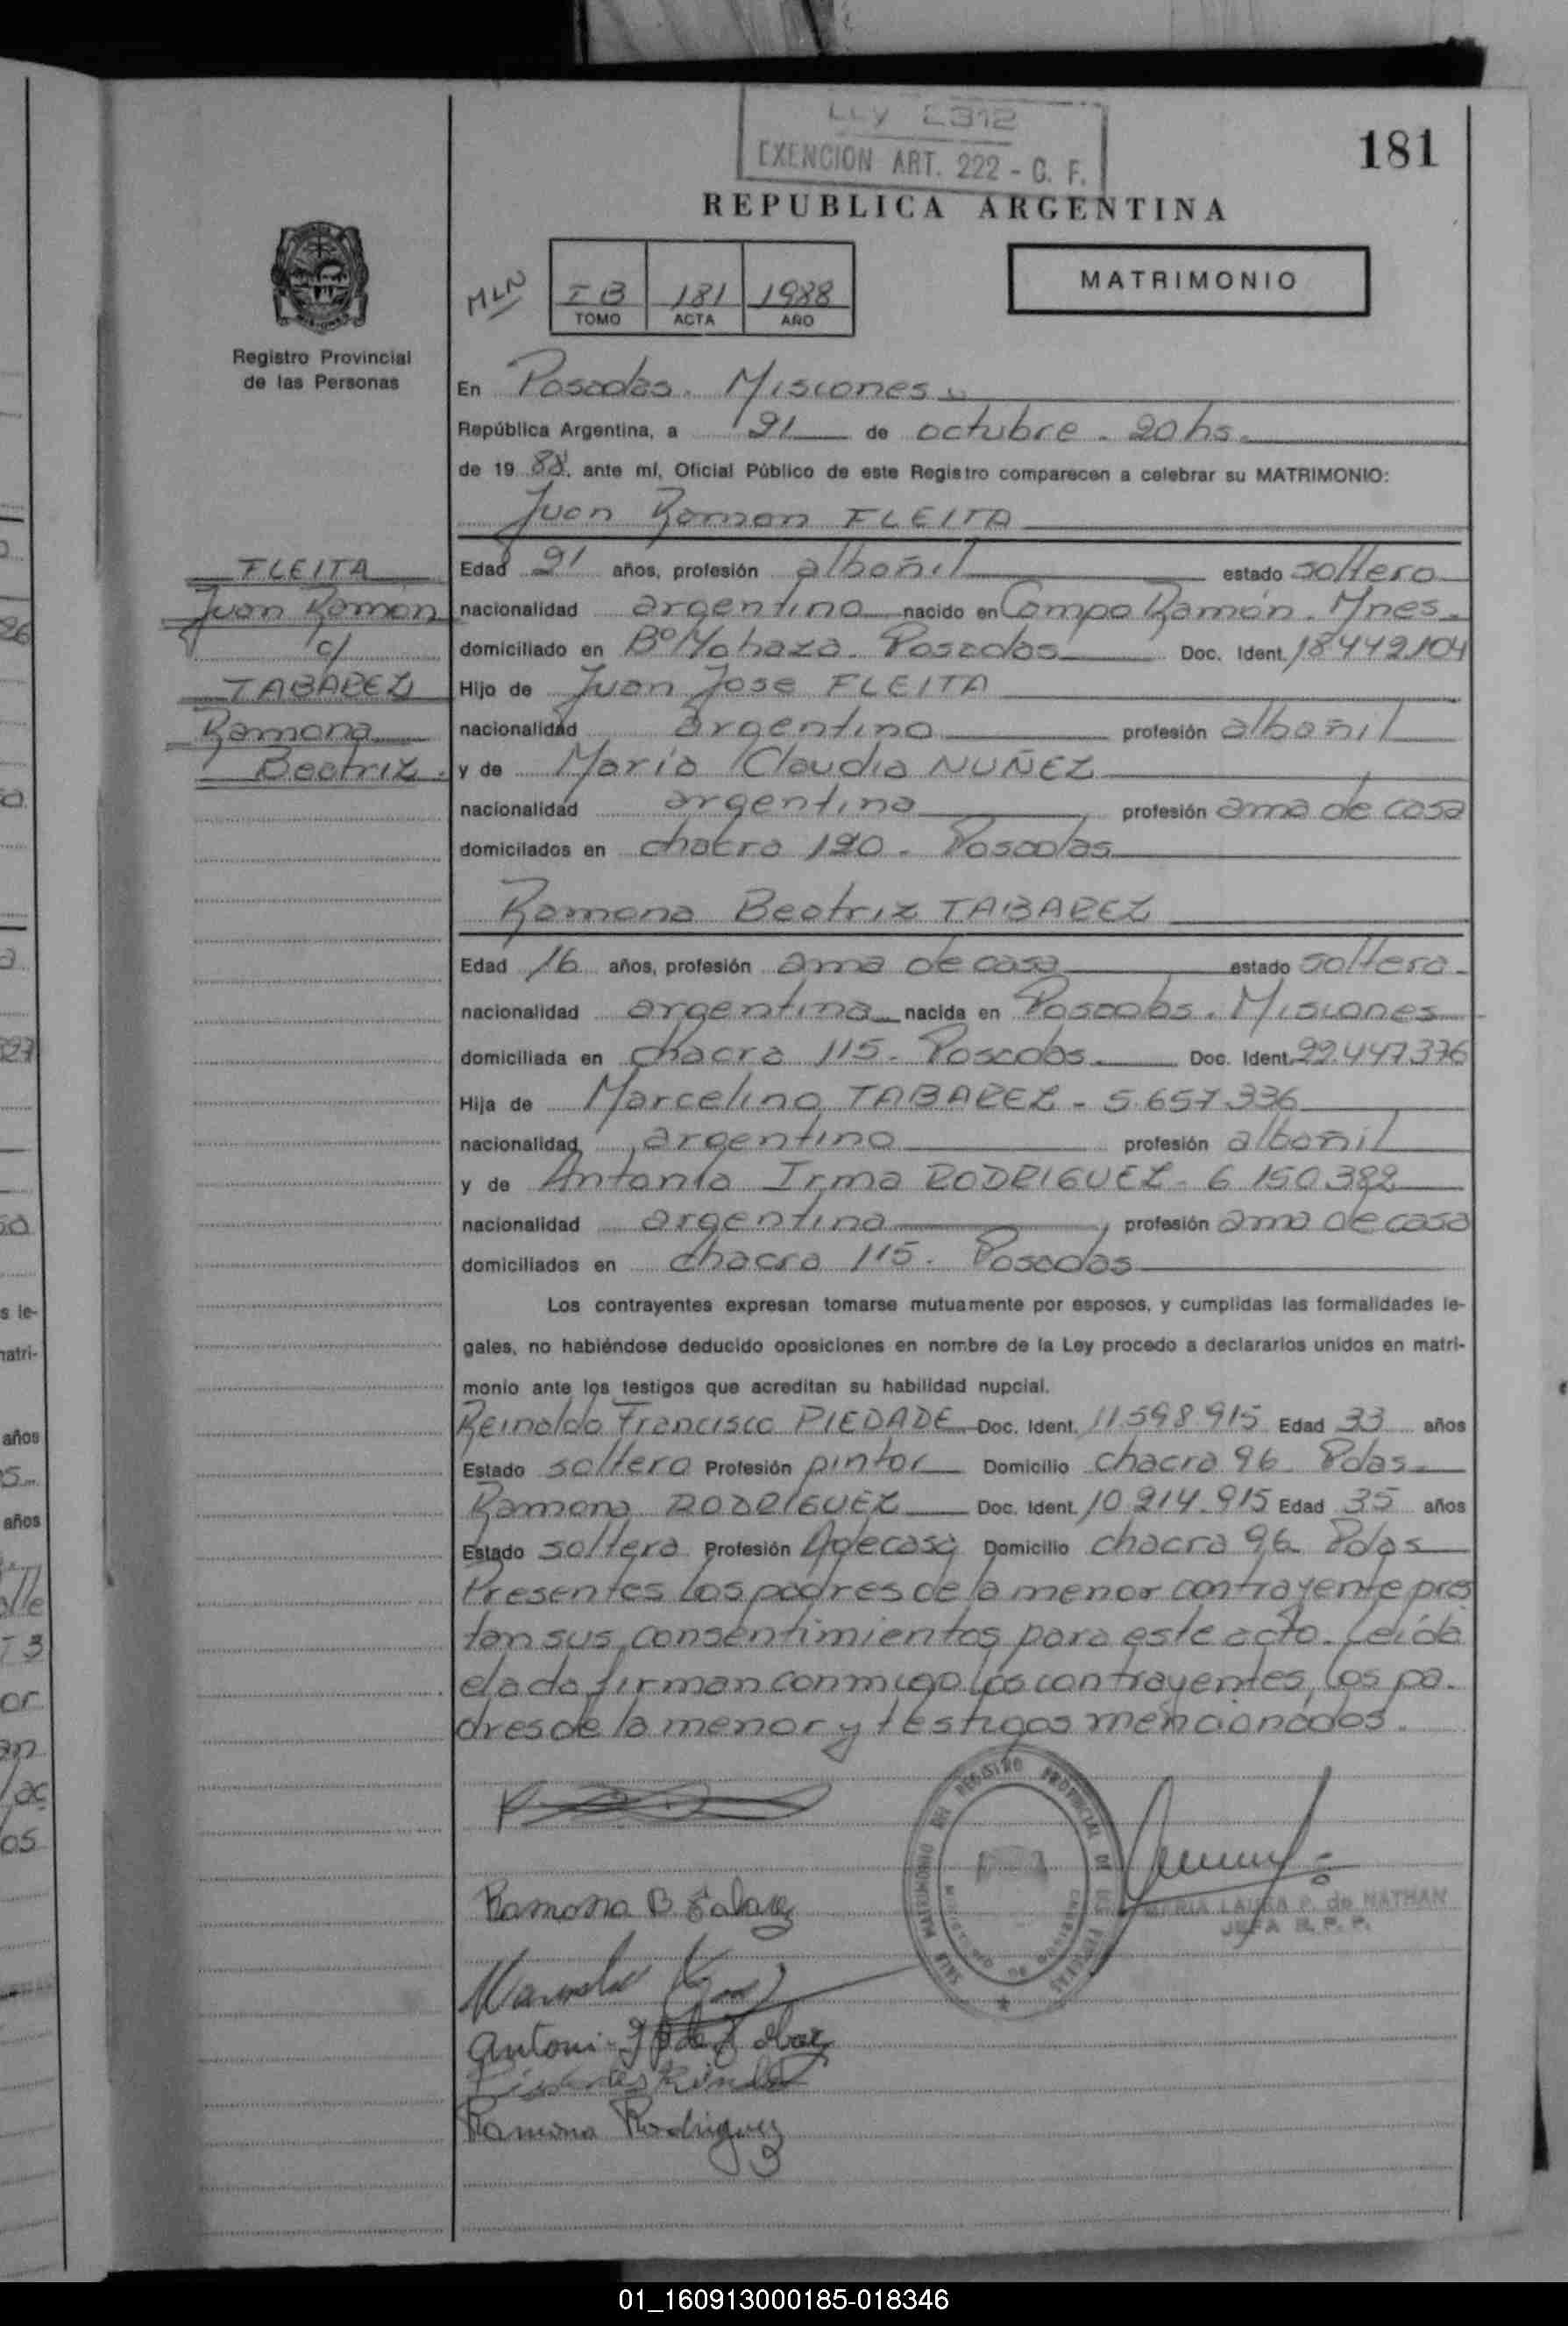 Ley 2312
EXENCION ART. 222 - C. F.
181
REPUBLICA ARGENTINA
MLN
I B 181 1988
TOMO ACTA AÑO
MATRIMONIO
Registro Provincial
de las Personas
En Posadas. Misiones
República Argentina, a 21 de octubre. 20 hs.
de 19 88. ante mí, Oficial Público de este Registro comparecen a celebrar su MATRIMONIO:
Juan Ramon FLEITA
FLEITA
Juan Ramón
c/
TABAREZ
Ramona
Beatriz.
Edad 21 años, profesión albañil estado soltero
nacionalidad argentino nacido en Campo Ramón. Mnes.
domiciliado en Bº Yohasa. Posadas Doc. Ident. 18.442.104
Hijo de Juan Jose FLEITA
nacionalidad argentino profesión albañil
y de María Claudia NUÑEZ
nacionalidad argentina profesión ama de casa
domiciliados en chacra 120. Posadas
Ramona Beatriz TABAREZ
Edad 16 años, profesión ama de casa estado soltera.
nacionalidad argentina nacida en Posadas. Misiones
domiciliada en chacra 115. Posadas. Doc. Ident. 22.447.376
Hija de Marcelino TABAREZ - 5.657.336
nacionalidad argentino profesión albañil
y de Antonia Irma RODRIGUEZ - 6.150.382
nacionalidad argentina, profesión ama de casa
domiciliados en chacra 115. Posadas
Los contrayentes expresan tomarse mutuamente por esposos, y cumplidas las formalidades le-
gales, no habiéndose deducido oposiciones en nombre de la Ley procedo a declararlos unidos en matri-
monio ante los testigos que acreditan su habilidad nupcial.
Reinaldo Francisco PIEDADE Doc. Ident. 11.598.915 Edad 33 años
Estado soltero Profesión pintor Domicilio chacra 96 Pdas.
Ramona RODRIGUEZ Doc. Ident. 10.214.915 Edad 35 años
Estado soltera Profesión Adecasa Domicilio chacra 96 Pdas
Presentes los padres de la menor contrayente pres
tan sus consentimientos para este acto. Leída
el acta firman conmigo los contrayentes, los pa.
dres de la menor y testigos mencionados.
SALA MATRIMONIO DEL REGISTRO PROVINCIAL DE LAS PERSONAS
Ramona B Tabarez
MARIA LAURA P. de NATHAN
JEFA R. P. P.
Ramona Rodriguez
01_160913000185-018346